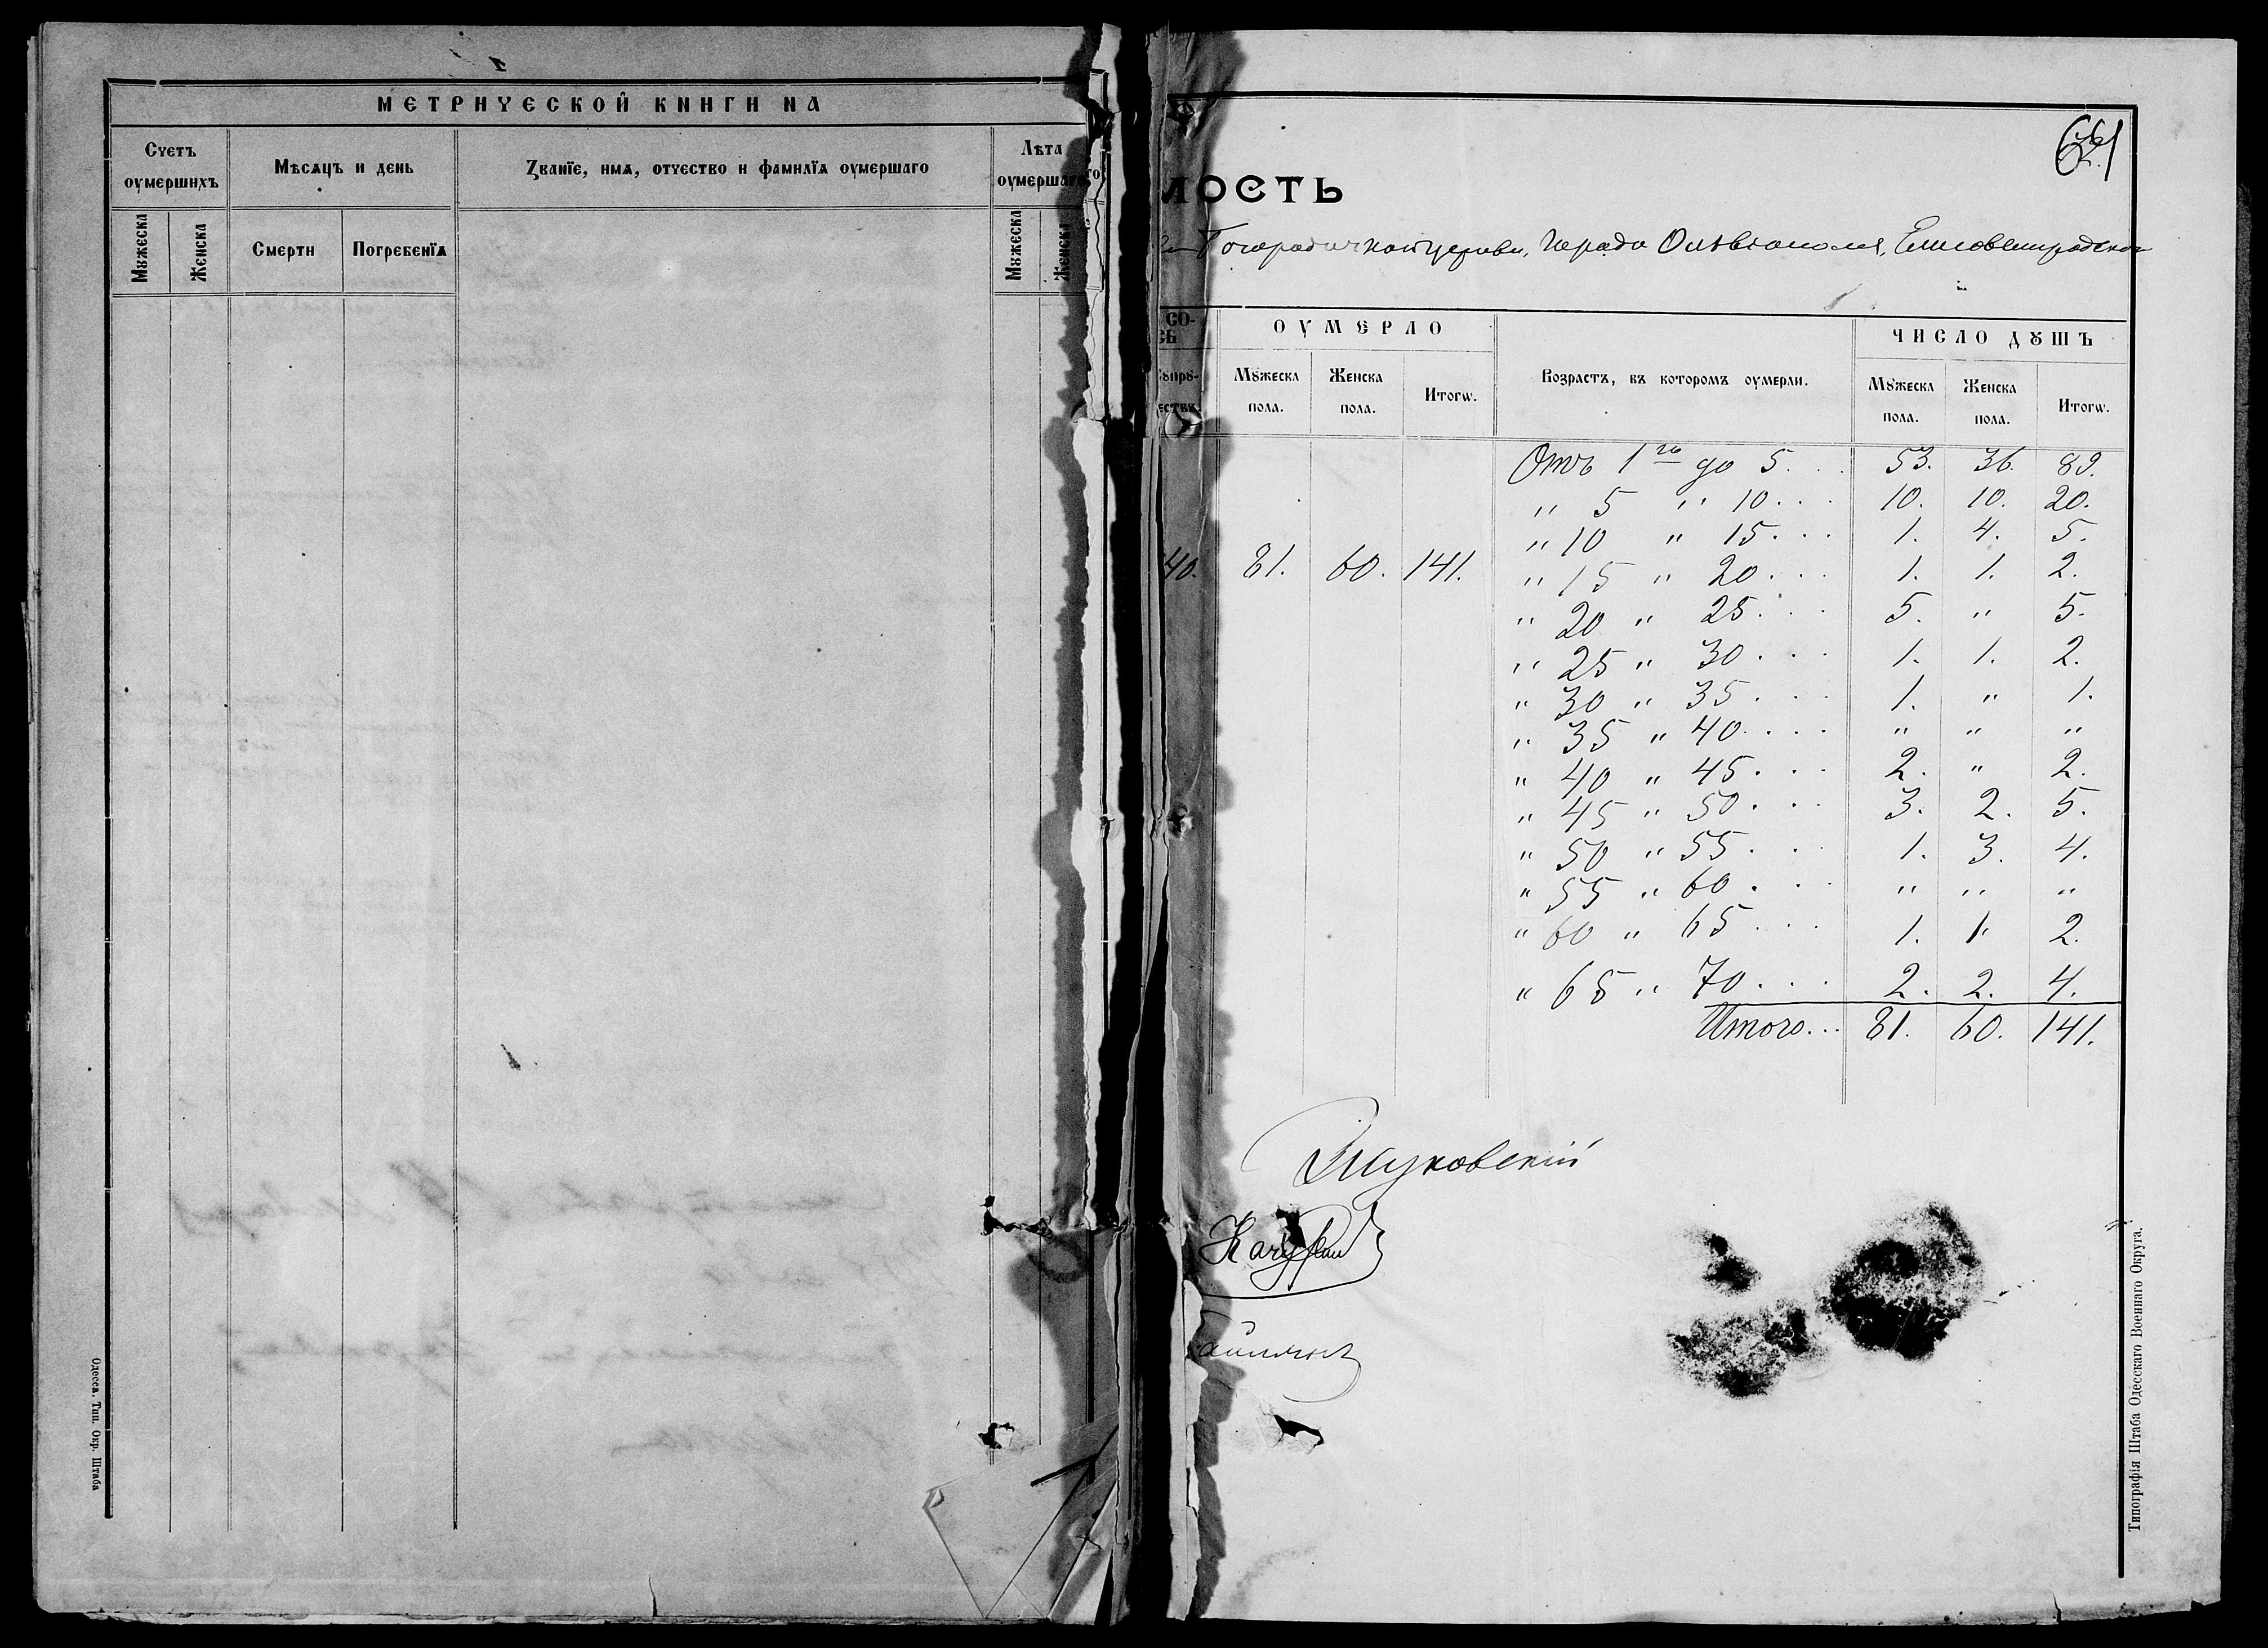 МЕТРИЧЕСКОЙ КНИГИ НА
Счетъ оумершихъ
Мѣсяцъ и день
Званїе, имѧ, отчество и фамилїѧ оумершаго
Лѣта оумершаго
Мꙋжеска
Женска
Смерти
Погребенїѧ
Мꙋжеска
Женска
Одесса. Тип. Окр. Штаба
661
МОСТЬ
Богородичной церкви, города Ольвіополя, Елисаветградскаго
ОУМЕРЛО
Возрастъ, въ которомъ оумерли.
ЧИСЛО ДꙋШЪ
Мꙋжеска пола.
Женска пола.
Итогѡ.
Мꙋжеска пола.
Женска пола.
Итогѡ.
Отъ 1го до 5... 53. 36. 89.
" 5 " 10... 10. 10. 20.
" 10 " 15... 1. 4. 5.
40. 81. 60. 141. " 15 " 20... 1. 1. 2.
" 20 " 25... 5. " 5.
" 25 " 30... 1. 1. 2.
" 30 " 35... 1. " 1.
" 35 " 40.... " " "
" 40 " 45... 2. " 2.
" 45 " 50... 3. 2. 5.
" 50 " 55... 1. 3. 4.
" 55 " 60... " " "
" 60 " 65... 1. 1. 2.
" 65 " 70... 2. 2. 4.
Итого... 81. 60. 141.
Жуковскій
Типографія Штаба Одесскаго Военнаго Округа.